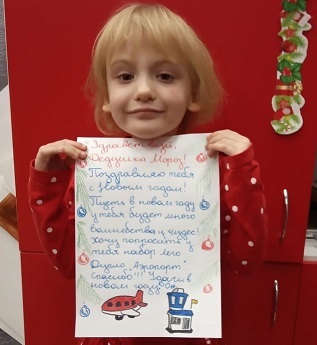 Здравствуй,
Дедушка Мороз!
Поздравляю тебя
с Новым годом!
Пусть в новом году
у тебя будет много
волшебства и чудес!
Хочу попросить у
тебя набор лего
Дупло „Аэропорт"
Спасибо!!! Удачи в
новом году!